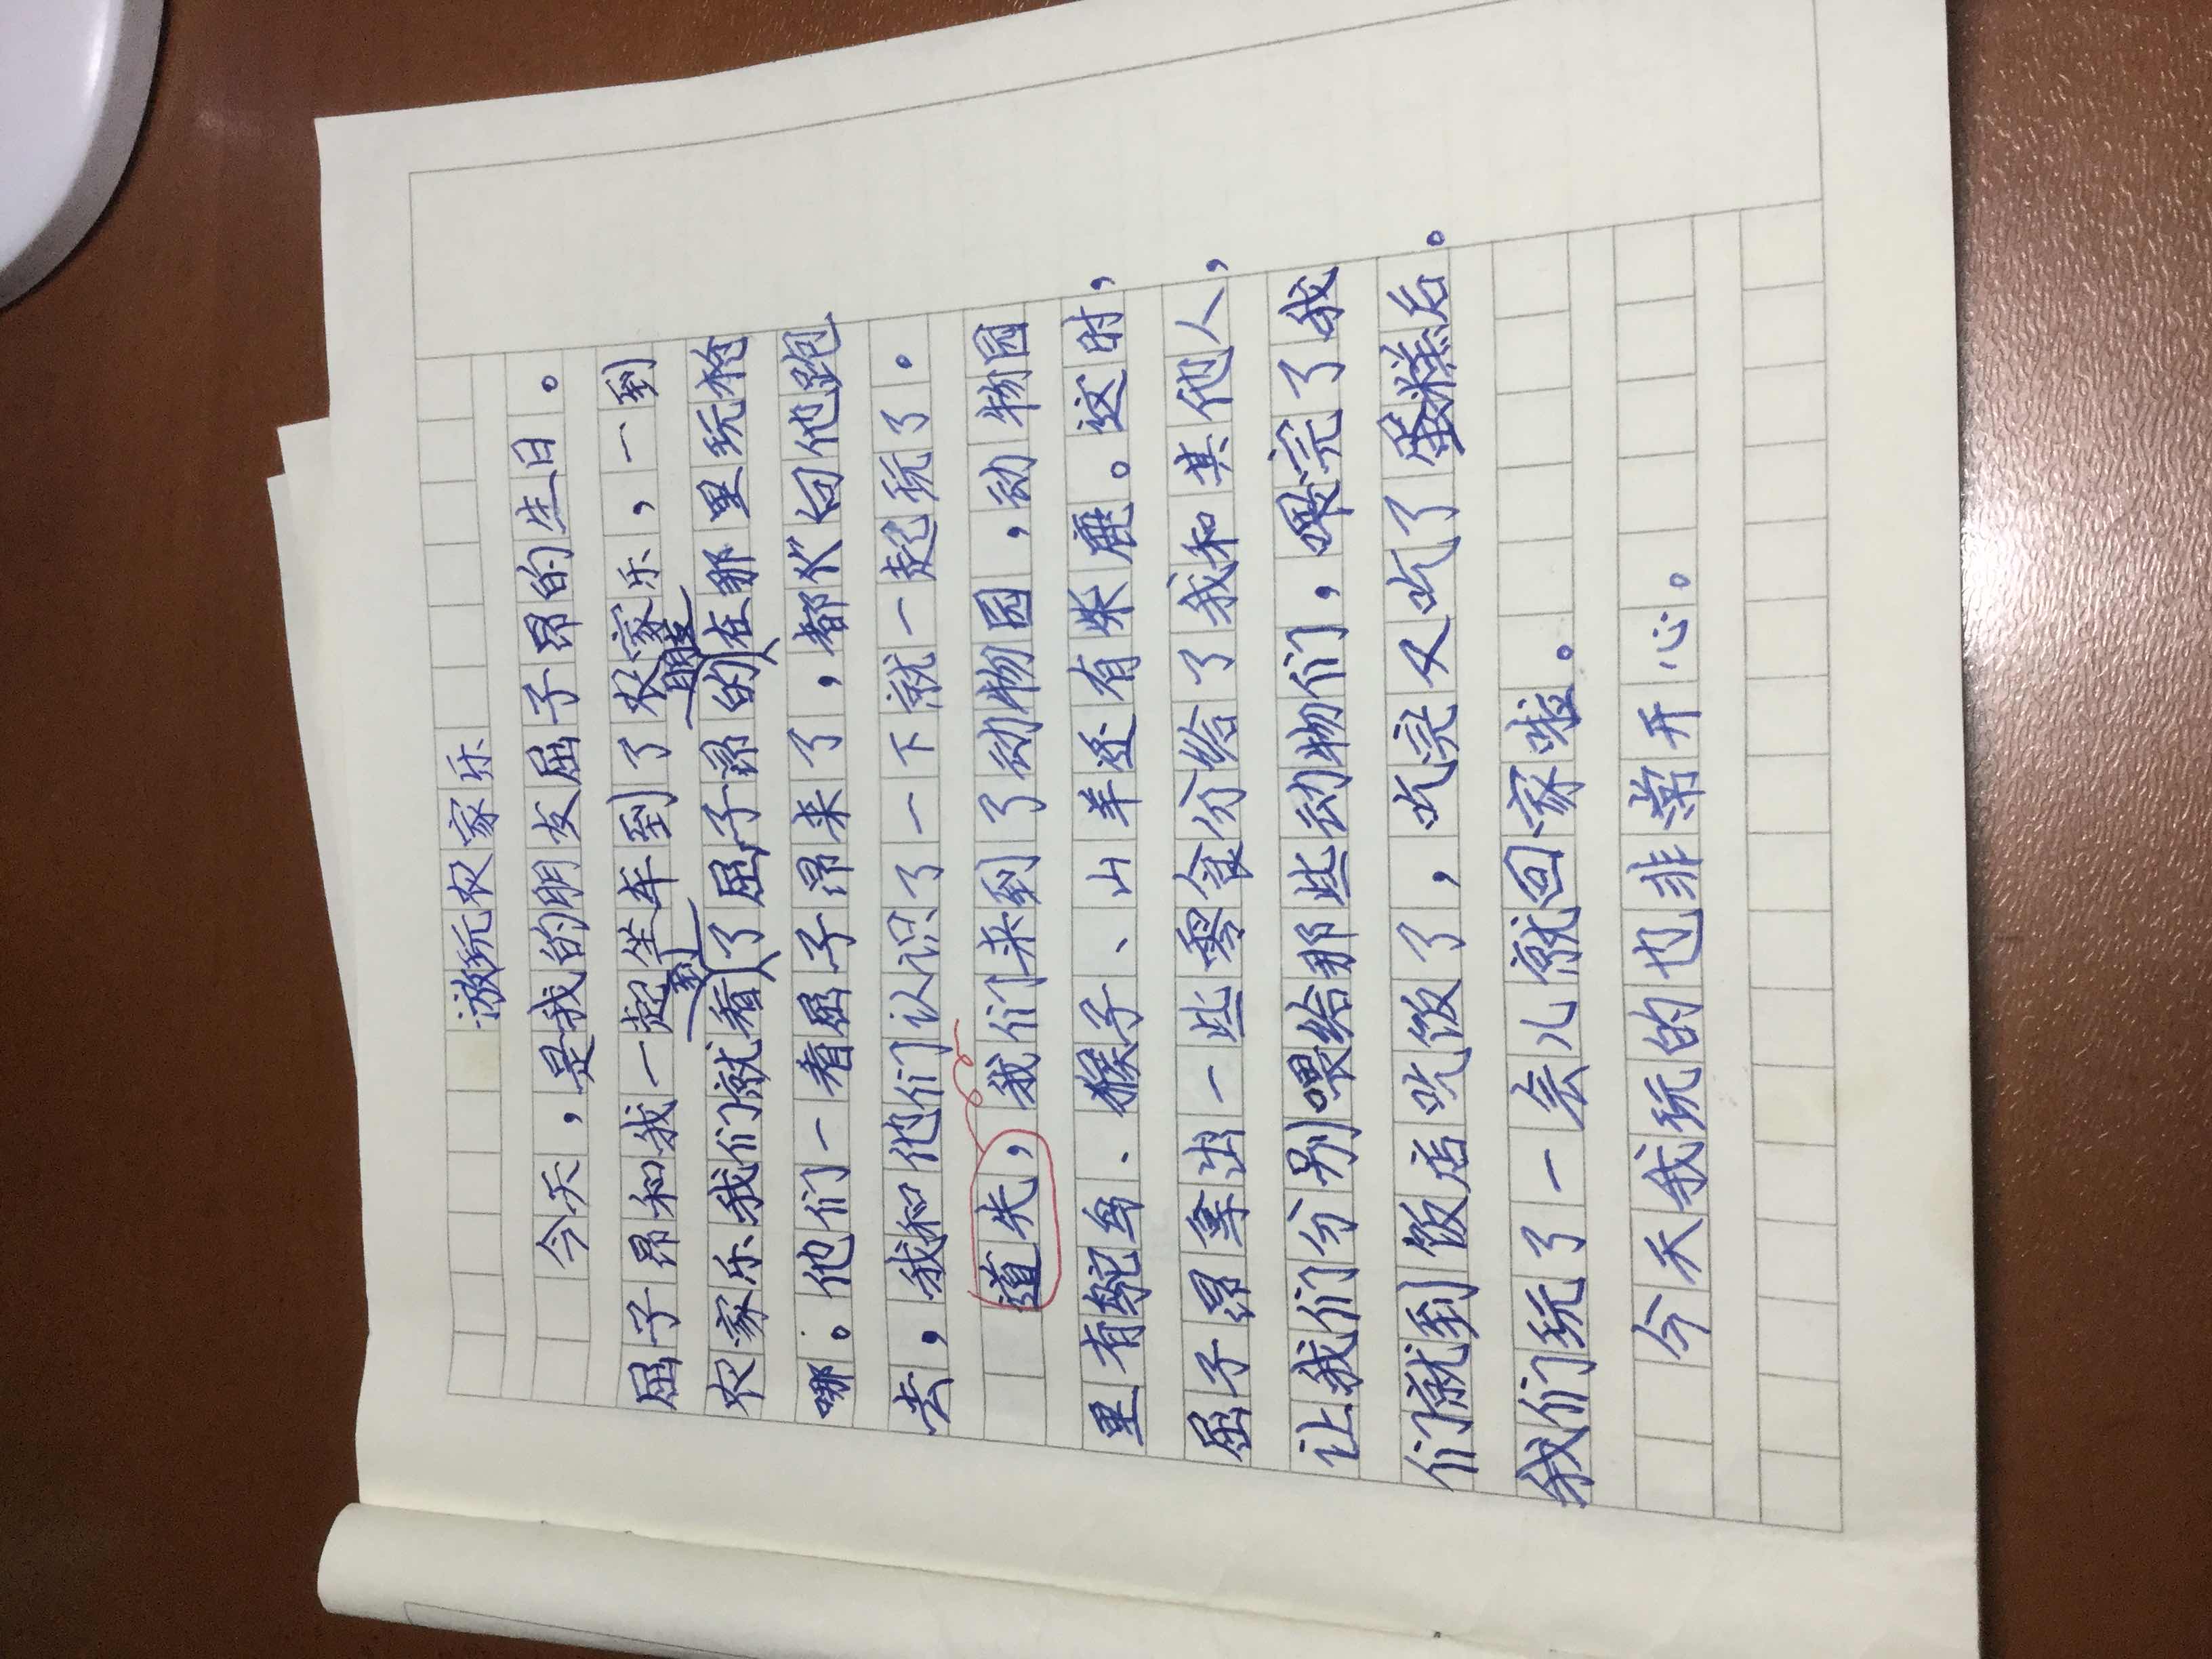 游玩农家乐
今天，是我的朋友屈子昂的生日。
屈子昂和我一起坐车到了农家乐，一到
农家乐我们就看到了屈子昂的朋友在那里玩枪
哪。他们一看屈子昂来了，都火向他跑
去，我和他们认识了一下就一起玩了。
道失，我们来到了动物园，动物园
里有鸵鸟、猴子、山羊还有柴鹿。这时，
屈子昂拿出一些零食分给了我和其他人，
让我们分别喂给那些动物们，喂完了我
们就到饭店吃饭了，吃完又吃了蛋糕后。
我们玩了一会儿就回家啦。
今天我玩的也非常开心。